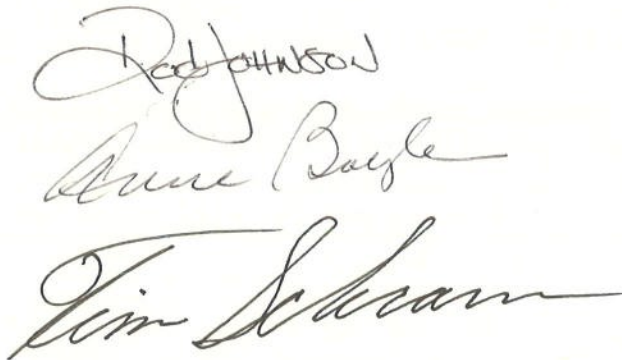 Rod Johnson
Anne Boyle
Tim Schramm